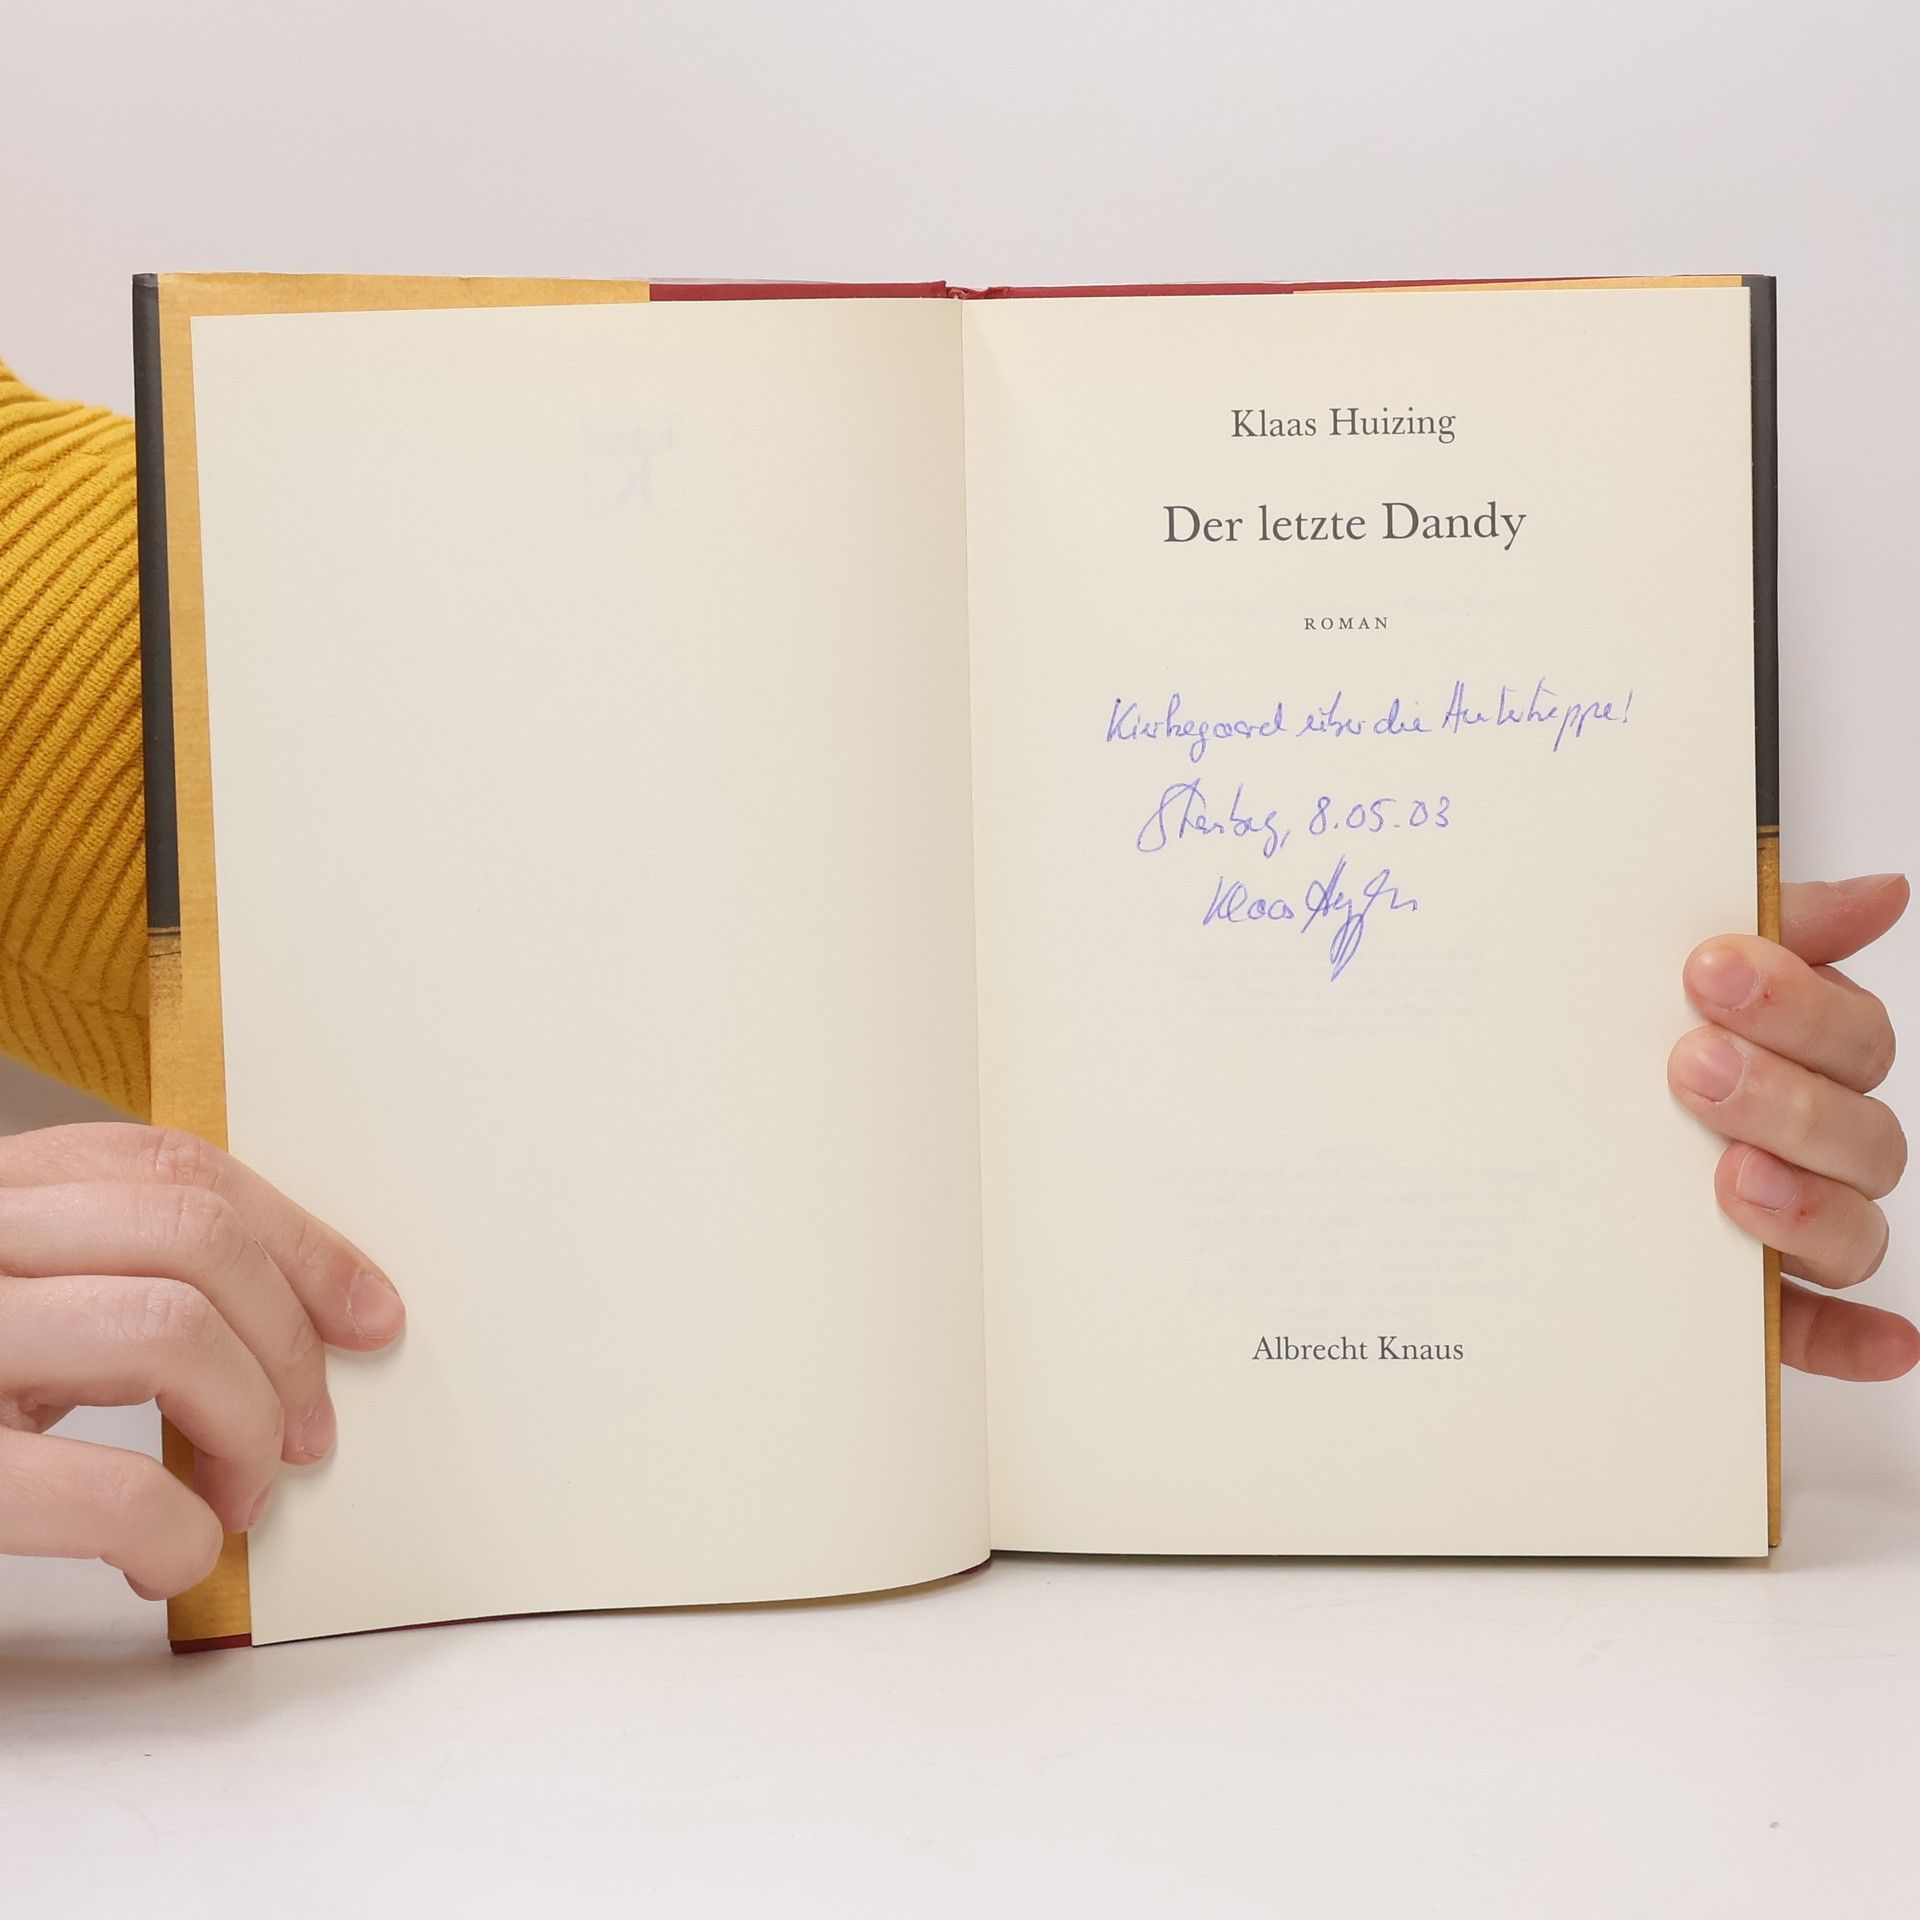 Klaas Huizing
Der letzte Dandy
ROMAN
Kierkegaard über die Hintertreppe!
8.05.03
Klaas
Albrecht Knaus
K